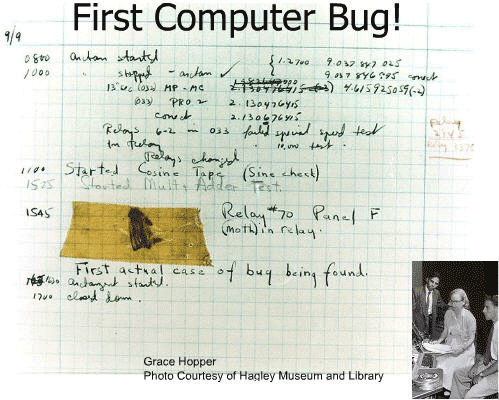 First Computer Bug!
9/9
0800 Antan started
1000 " stopped - antan ✓ { 1.2700 9.037 847 025
9.037 846 995 correct
13"uc (033) MP - MC 4.615925059(-2)
(033) PRO 2 2.130476415
correct 2.130676415
Relays 6-2 in 033 failed special speed test
in Relay " 10,000 test .
Relays changed
1100 Started Cosine Tape (Sine check)
1525 Started Mult + Adder Test.
1545 Relay #70 Panel F
(Moth) in relay.
First actual case of bug being found.
antangent started.
1700 closed down .
Grace Hopper
Photo Courtesy of Hagley Museum and Library